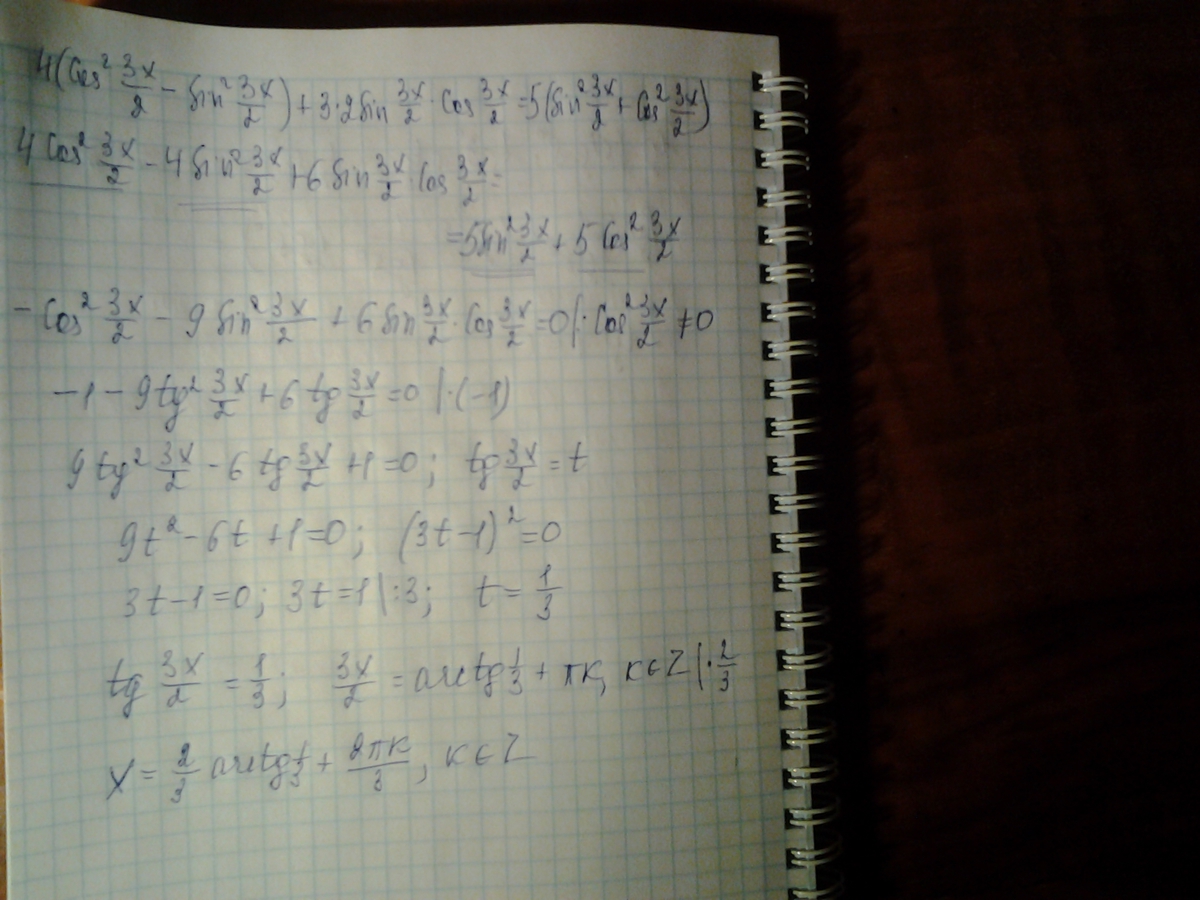 4(cos² 3x/2 − sin² 3x/2) + 3·2sin 3x/2 · cos 3x/2 = 5(sin² 3x/2 + cos² 3x/2)
4cos² 3x/2 − 4sin² 3x/2 + 6sin 3x/2 · cos 3x/2 =
= 5sin² 3x/2 + 5cos² 3x/2
− cos² 3x/2 − 9sin² 3x/2 + 6sin 3x/2 · cos 3x/2 = 0 |: cos² 3x/2 ≠ 0
−1 − 9tg² 3x/2 + 6tg 3x/2 = 0 |·(−1)
9tg² 3x/2 − 6tg 3x/2 + 1 = 0; tg 3x/2 = t
9t² − 6t + 1 = 0; (3t − 1)² = 0
3t − 1 = 0; 3t = 1 |:3; t = 1/3
tg 3x/2 = 1/3; 3x/2 = arctg 1/3 + πk, k∈Z |· 2/3
x = 2/3 arctg 1/3 + 2πk/3, k∈Z